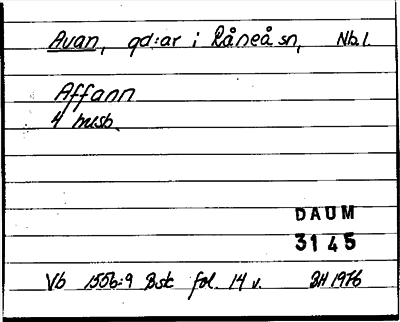 Avan, gd:ar i Råneå sn, Nb.l.
Affann
4 msb.
DAUM
3145
Vb 1556:9 Bsk fol. 14 v. BH 1976